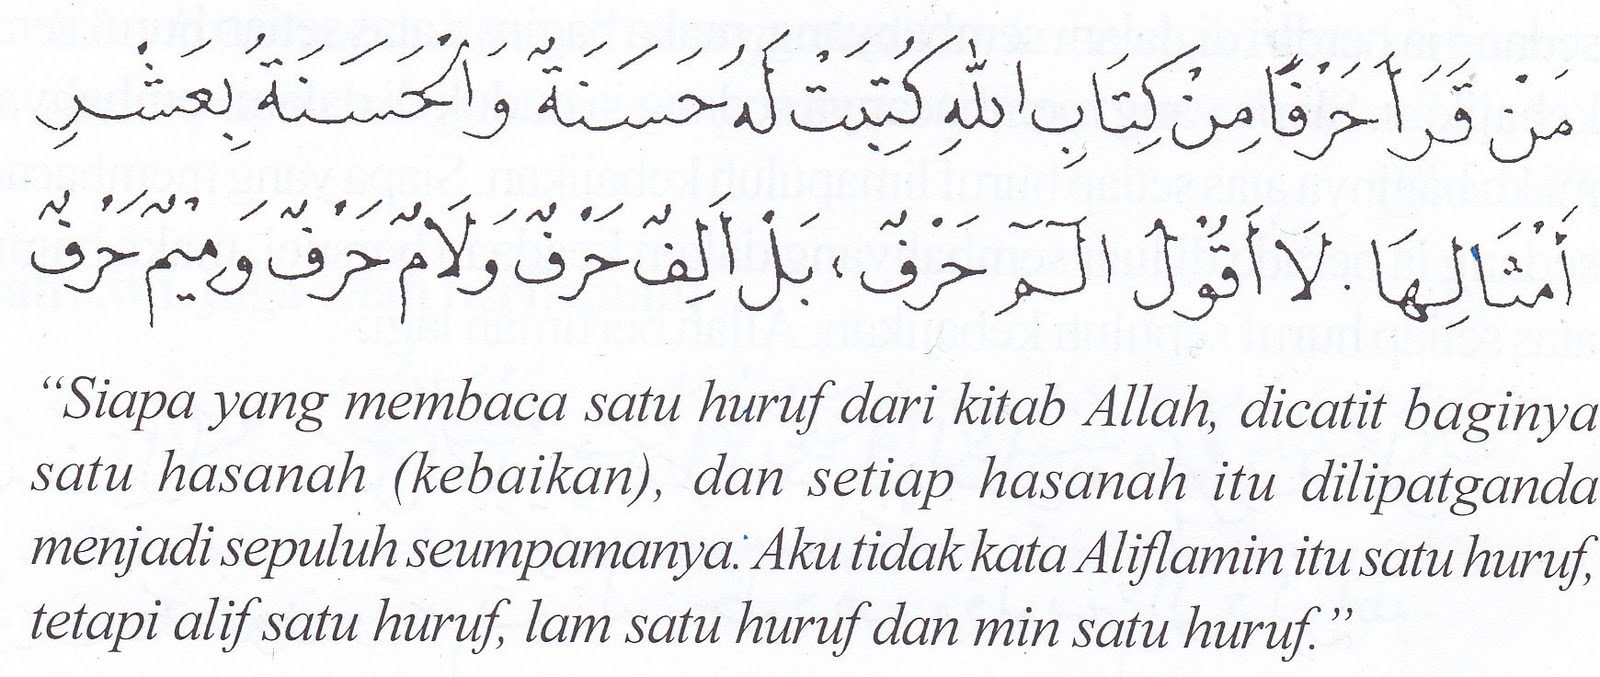 مَنْ قَرَأَ حَرْفًا مِنْ كِتَابِ اللهِ كُتِبَتْ لَهُ حَسَنَةٌ وَالْحَسَنَةُ بِعَشْرِ
أَمْثَالِهَا. لَا أَقُوْلُ الٓمٓ حَرْفٌ، بَلْ أَلِفٌ حَرْفٌ وَلَامٌ حَرْفٌ وَمِيْمٌ حَرْفٌ
“Siapa yang membaca satu huruf dari kitab Allah, dicatit baginya
satu hasanah (kebaikan), dan setiap hasanah itu dilipatganda
menjadi sepuluh seumpamanya. Aku tidak kata Aliflamin itu satu huruf,
tetapi alif satu huruf, lam satu huruf dan min satu huruf.”